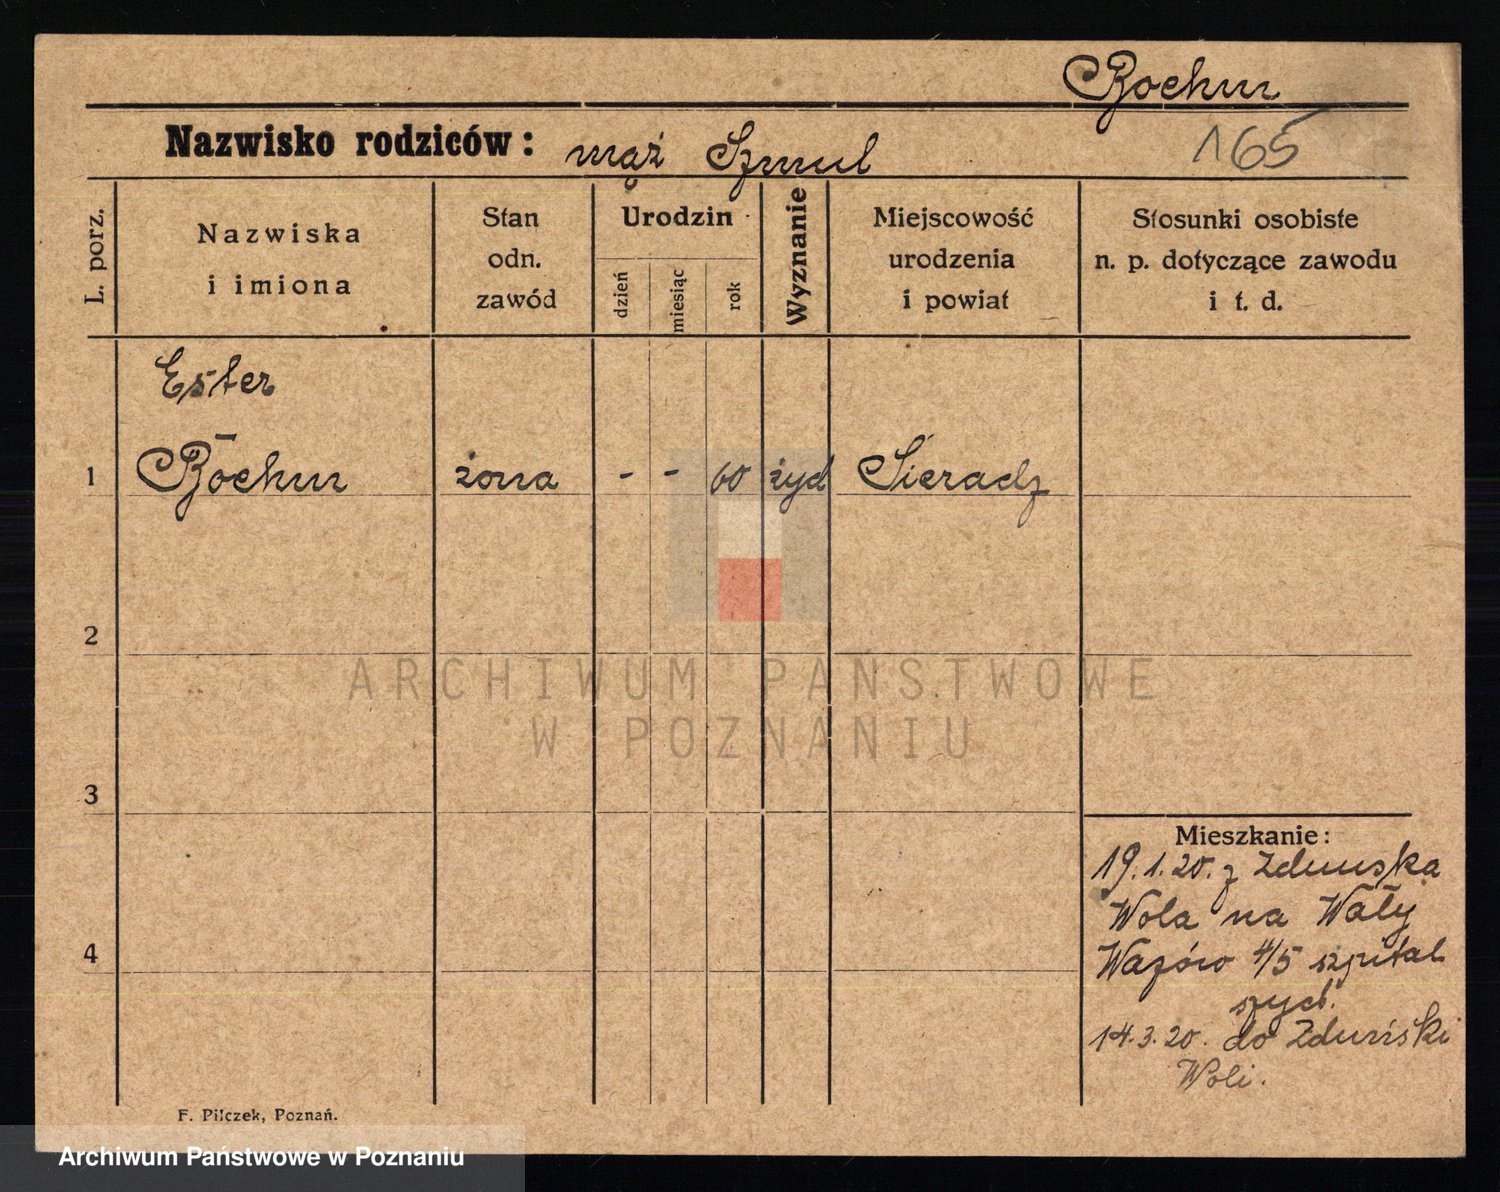 Bochm
Nazwisko rodziców: mąż Szmul
165
L. porz.
Nazwiska
i imiona
Stan
odn.
zawód
Urodzin
dzień
miesiąc
rok
Wyznanie
Miejscowość
urodzenia
i powiat
Stosunki osobiste
n. p. dotyczące zawodu
i t. d.
Ester
1 Bochm żona - - 60 żyd Sieradz
2
3
4
ARCHIWUM PAŃSTWOWE
W POZNANIU
Mieszkanie:
19.1.20. z Zduńska
Wola na Wały
Wazów 4/5 szpital
żyd.
14.3.20. do Zduński
Woli.
F. Pilczek, Poznań.
Archiwum Państwowe w Poznaniu